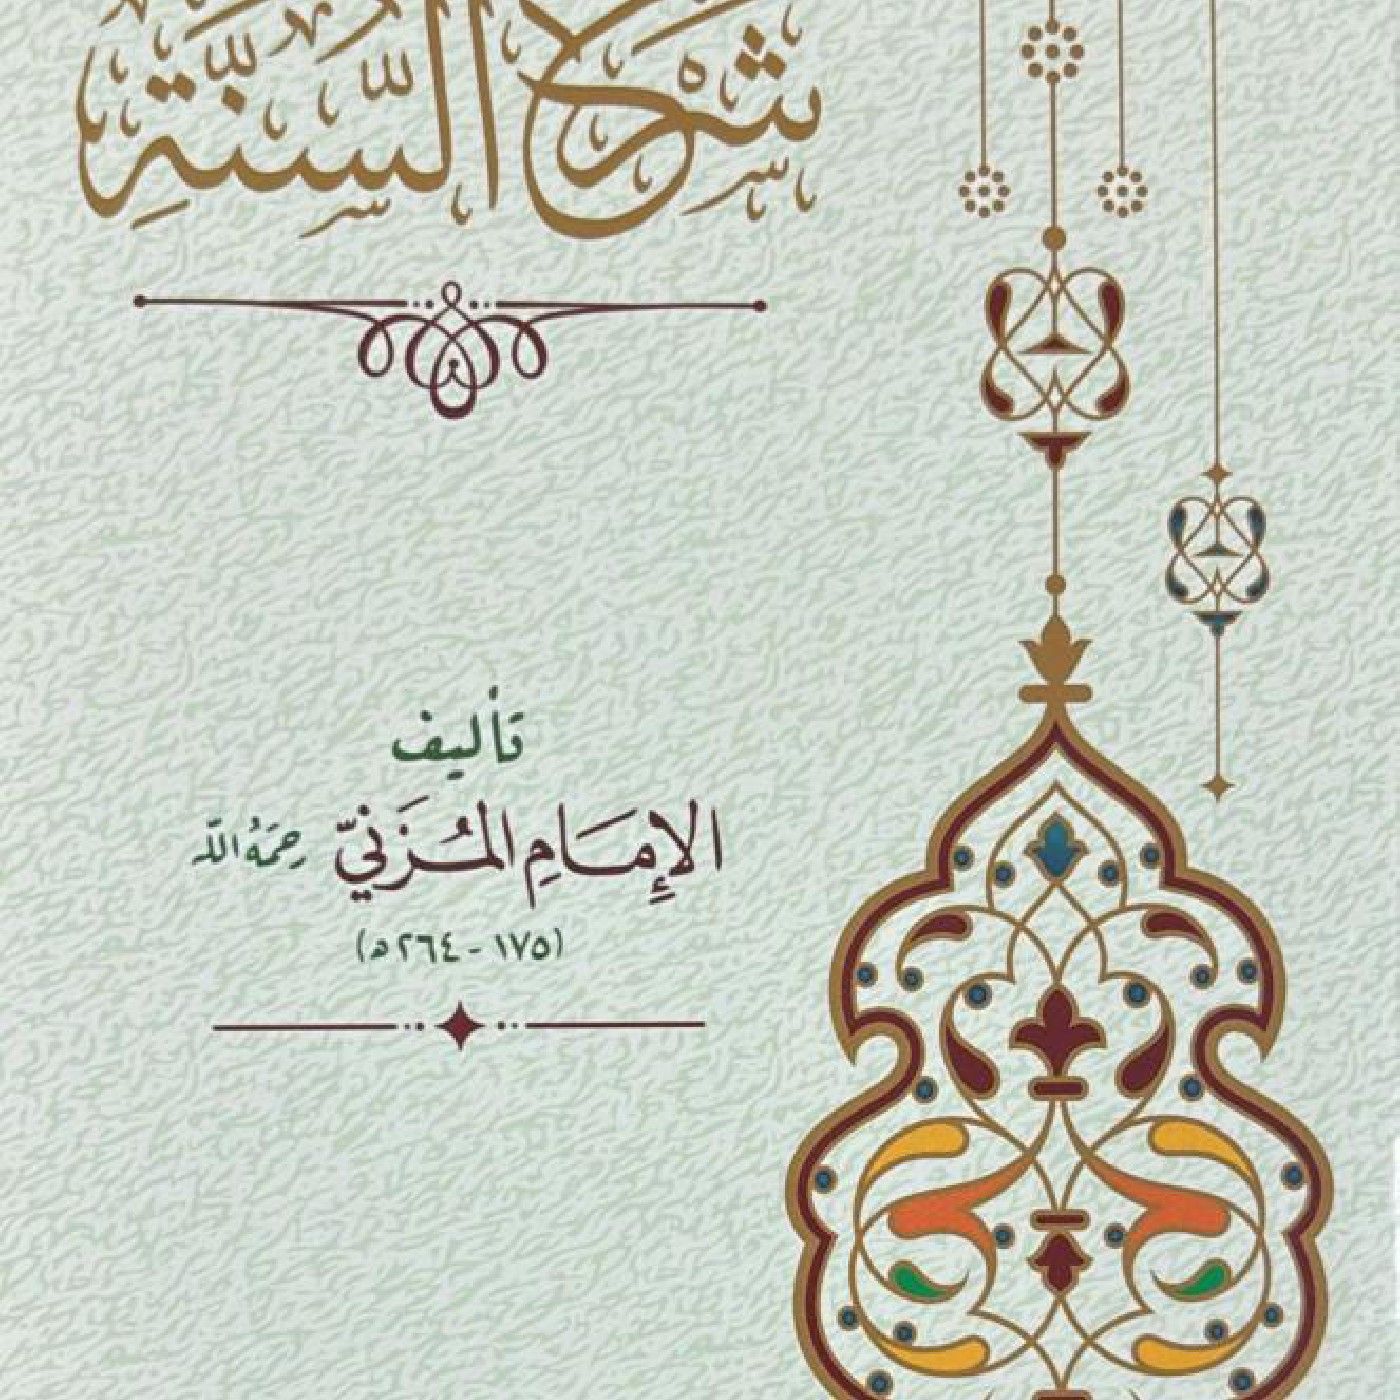 شَرْحُ السُّنَّةِ
تأليف
الإِمَامِ المُزَنِيّ رَحِمَهُ اللّه
(١٧٥ - ٢٦٤ هـ)